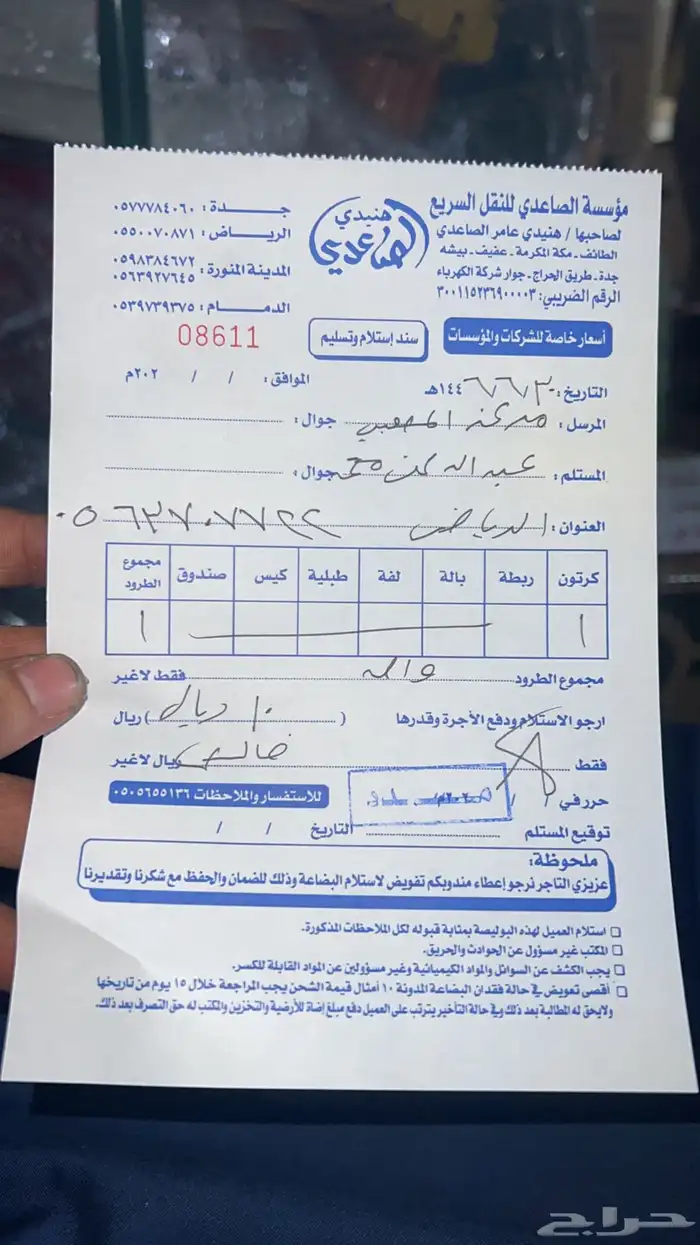 مؤسسة الصاعدي للنقل السريع
لصاحبها / هنيدي عامر الصاعدي
الطائف - مكة المكرمة - عفيف - بيشه
جدة - طريق الحراج - جوار شركة الكهرباء
الرقم الضريبي: ٣٠٠١١٥٢٣٦٩٠٠٠٠٣
هنيدي
الصاعدي
جـــدة: ٠٥٧٧٧٨٤٠٦٠
الرياض: ٠٥٥٠٠٧٠٨٧١
المدينة المنورة: ٠٥٩٨٣٨٤٦٧٢
٠٥٦٣٩٢٧٦٤٥
الدمـــام: ٠٥٣٩٧٣٩٣٧٥
08611
أسعار خاصة للشركات والمؤسسات
سند إستلام وتسليم
التاريخ: ١٤٤هـ
الموافق: / / ٢٠٢م
المرسل:
جوال:
المستلم: عبدالرحمن
جوال:
العنوان: الرياض ٠٥٦٣٧٠٧٧٢٢
كرتون ربطة بالة لفة طبلية كيس صندوق مجموع الطرود
١ ١
مجموع الطرود واحد فقط لاغير
ارجو الاستلام ودفع الأجرة وقدرها ( ١٠ ريال ) ريال
فقط خالص ريال لاغير
حرر في / /
للاستفسار والملاحظات ٠٥٠٥٦٥٥١٣٦
توقيع المستلم
التاريخ / /
ملحوظة:
عزيزي التاجر نرجو إعطاء مندوبكم تفويض لاستلام البضاعة وذلك للضمان والحفظ مع شكرنا وتقديرنا
استلام العميل لهذه البوليصة بمثابة قبوله لكل الملاحظات المذكورة.
المكتب غير مسؤول عن الحوادث والحريق.
يجب الكشف عن السوائل والمواد الكيميائية وغير مسؤولين عن المواد القابلة للكسر.
أقصى تعويض في حالة فقدان البضاعة المدونة ١٠ أمثال قيمة الشحن يجب المراجعة خلال ١٥ يوم من تاريخها
ولايحق له المطالبة بعد ذلك وفي حالة التأخير يترتب على العميل دفع مبلغ إضافة للأرضية والتخزين والمكتب له حق التصرف بعد ذلك.
حراج